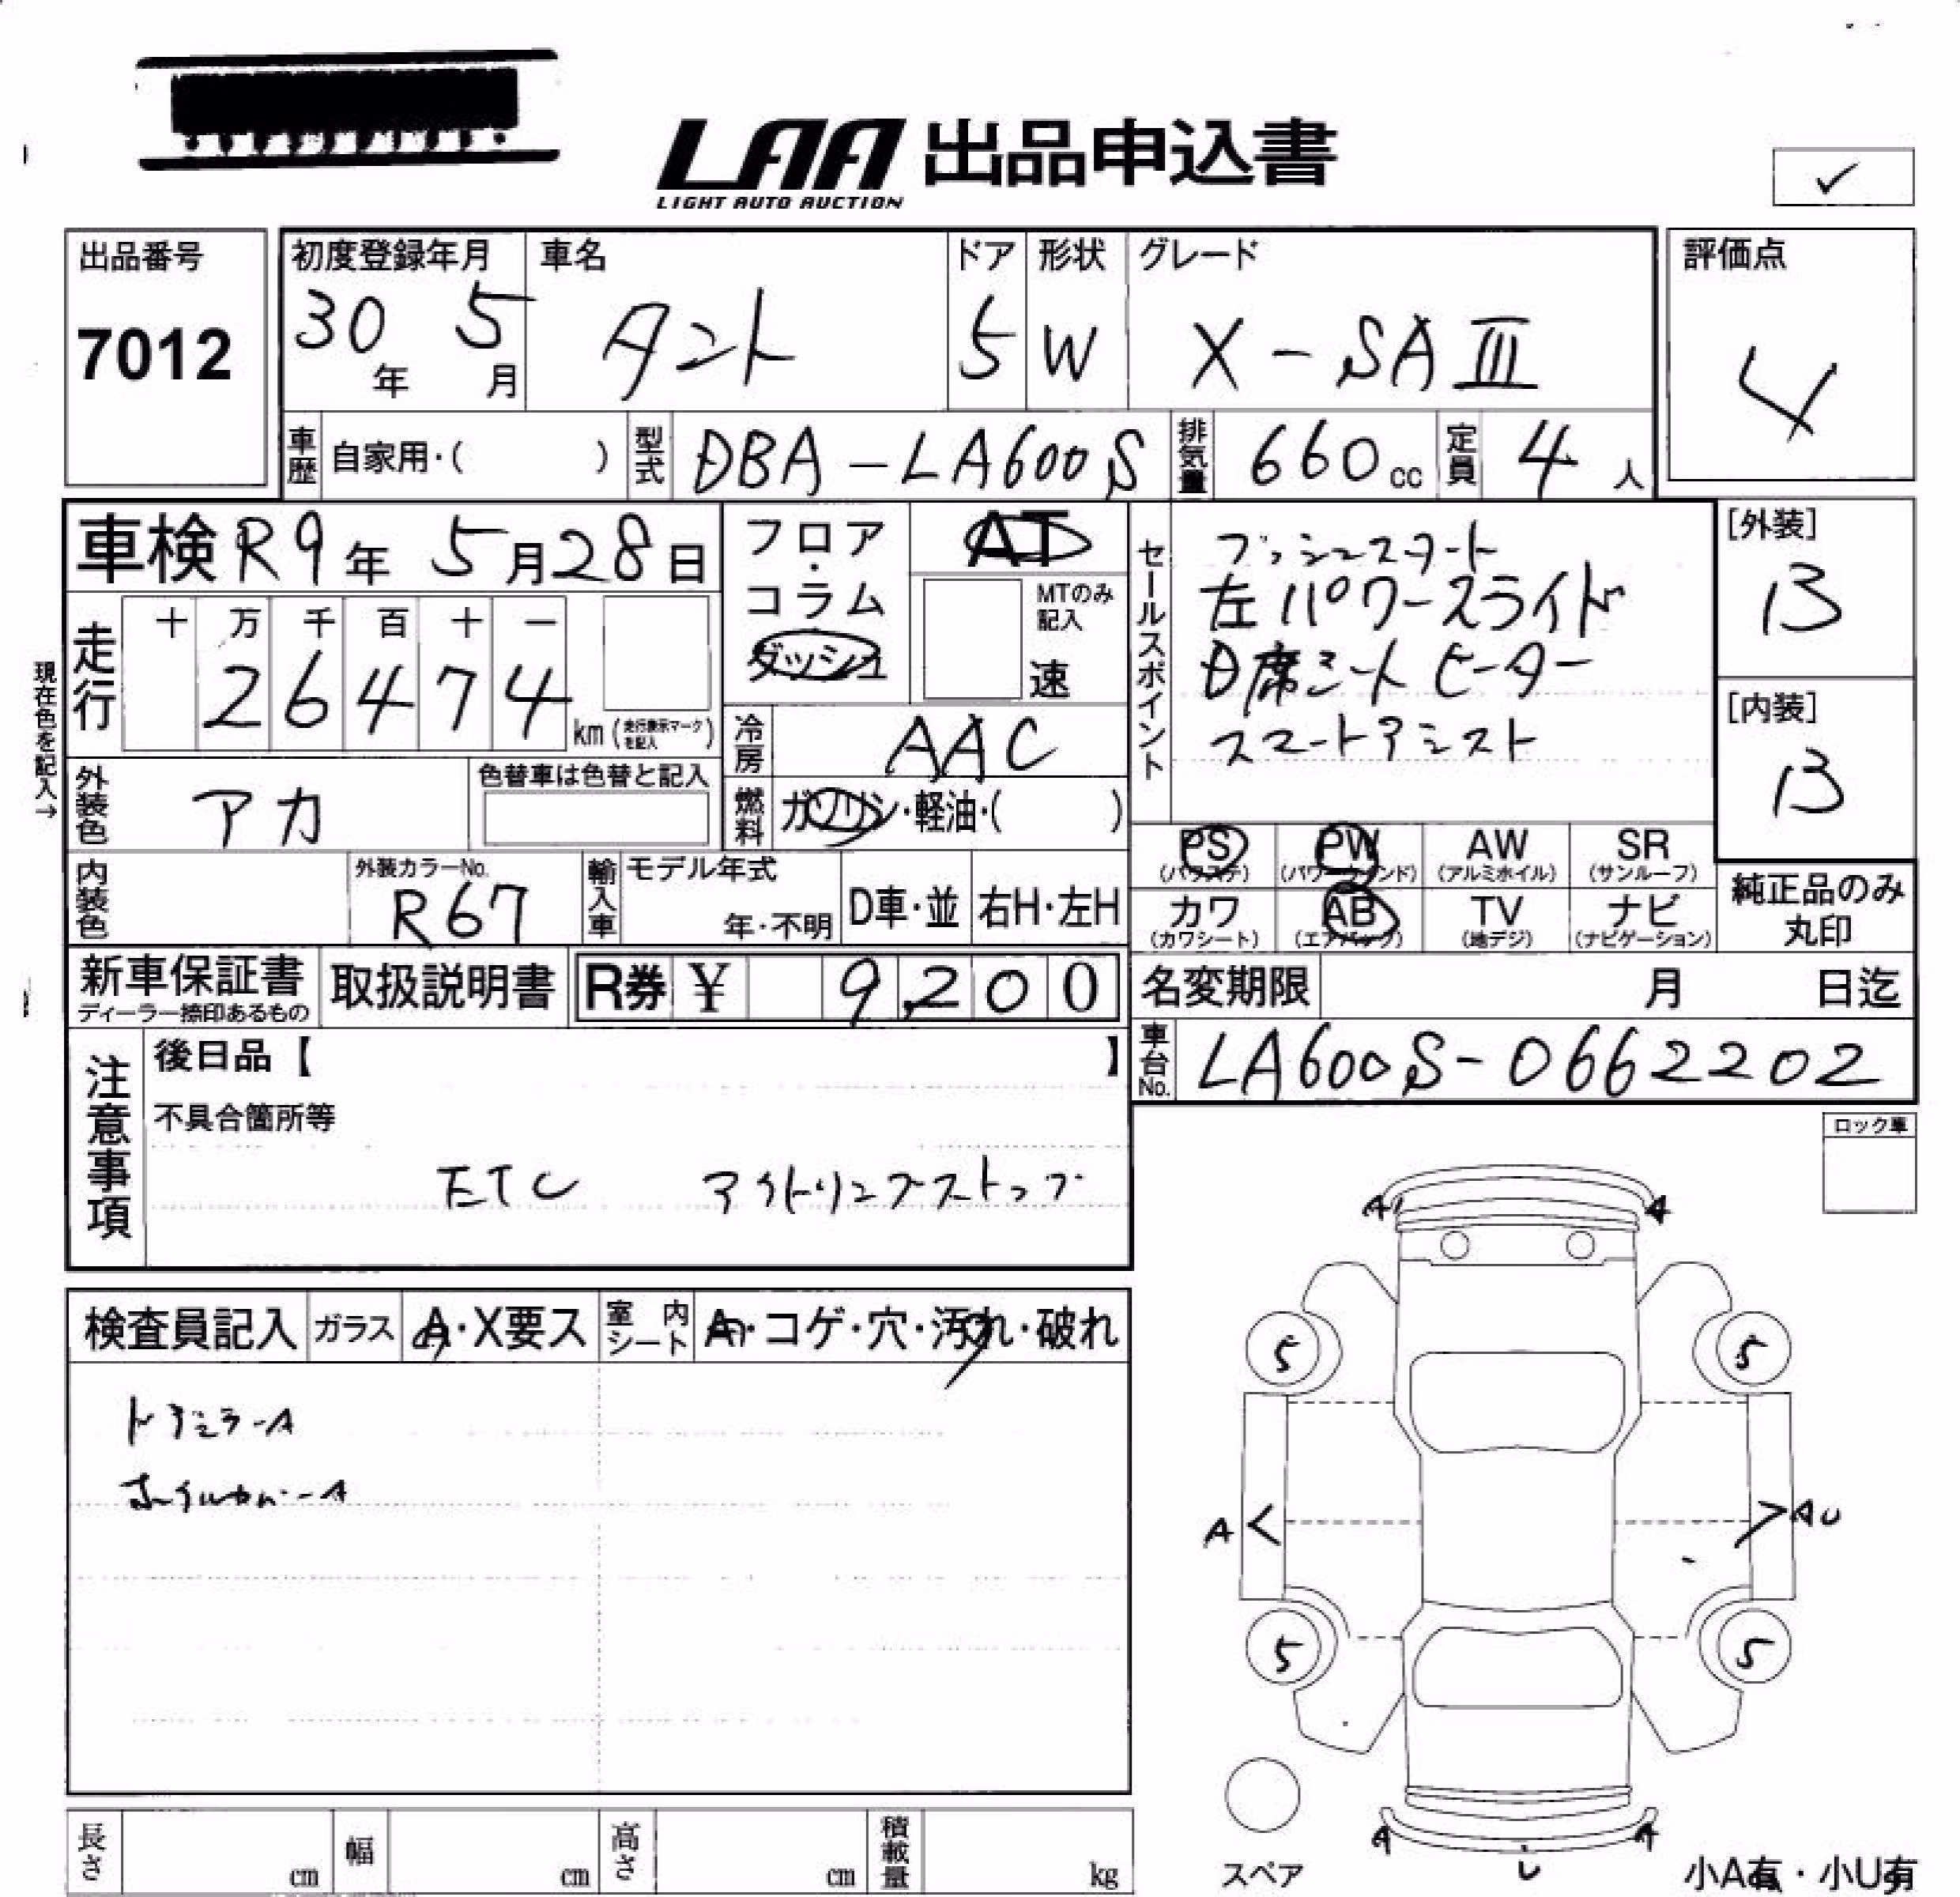 LAA 出品申込書
LIGHT AUTO AUCTION
✓
出品番号
7012
初度登録年月
30年 5月
車名
タント
ドア
5
形状
W
グレード
X-SAⅢ
評価点
4
車歴 自家用・( )
型式 DBA-LA600S
排気量 660cc
定員 4人
車検 R9年 5月28日
現在色を記入→
走行
十 万 千 百 十 一
26474
km(走行表示マークを記入)
フロア・コラム
ダッシュ
AT
MTのみ記入
速
冷房 AAC
燃料 ガソリン・軽油・( )
セールスポイント
プッシュスタート
左パワースライド
D席シートヒーター
スマートアシスト
[外装]
B
[内装]
B
外装色 アカ
色替車は色替と記入
内装色
外装カラーNo.
R67
輸入車
モデル年式
年・不明
D車・並
右H・左H
PS
(パワステ)
PW
(パワーウインド)
AW
(アルミホイル)
SR
(サンルーフ)
カワ
(カワシート)
AB
(エアバック)
TV
(地デジ)
ナビ
(ナビゲーション)
純正品のみ
丸印
新車保証書
ディーラー捺印あるもの
取扱説明書
R券 ¥ 9,200
名変期限 月 日迄
車台No. LA600S-0662202
注意事項
後日品【 】
不具合箇所等
ETC アイドリングストップ
ロック車
検査員記入
ガラス A・X要ス
室内シート A・コゲ・穴・汚れ・破れ
ドアミラーA
ホイルカバーA
A A
5 5
A < > AU
5 5
A U A
スペア
小A有・小U有
長さ cm
幅 cm
高さ cm
積載量 kg